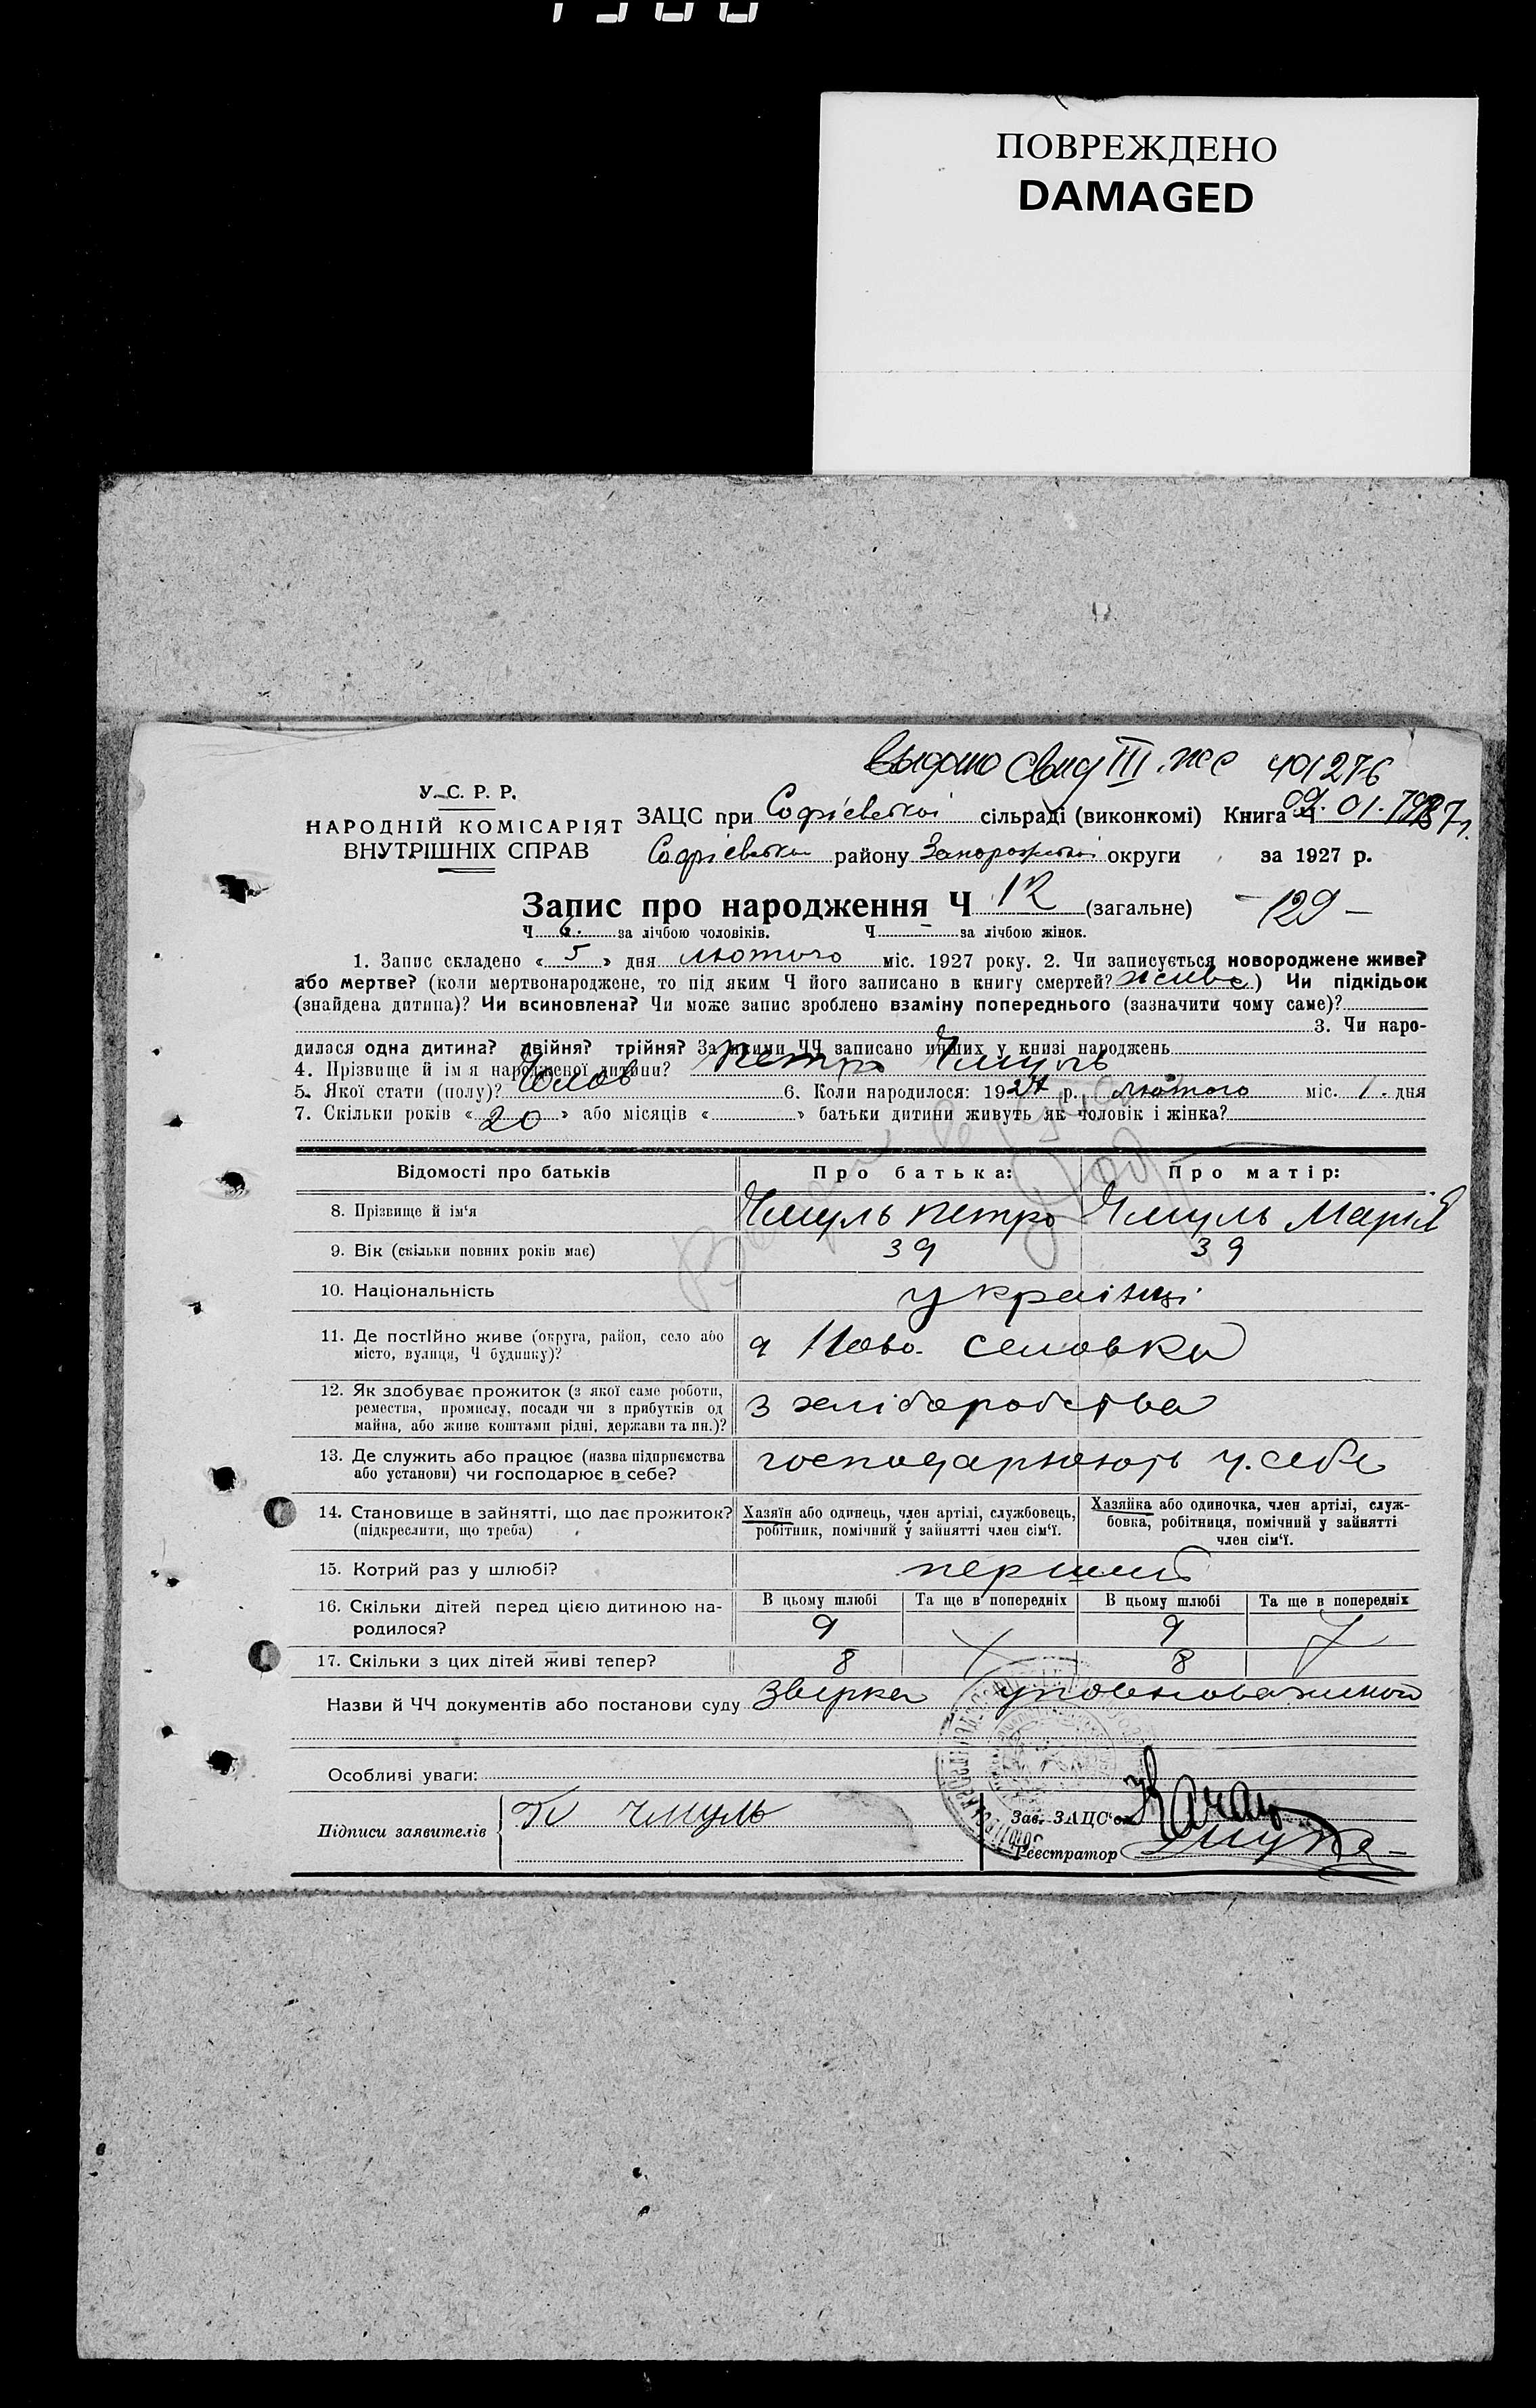 ПОВРЕЖДЕНО
DAMAGED
Выдано свид III. ЖС 401276
09. 01. 1987г.
У. С. Р. Р.
НАРОДНІЙ КОМІСАРІЯТ
ВНУТРІШНІХ СПРАВ
ЗАЦС при Софієвской сільраді (виконкомі) Книга Ч
района Запорожской округи за 1927 р.
Запис про народження Ч 12 (загальне) – 129 –
Ч 6. за лічбою чоловіків. Ч – за лічбою жінок.
1. Запис складено « 5 » дня лютого міс. 1927 року. 2. Чи записується новороджене живе?
або мертве? (коли мертвонароджене, то під яким Ч його записано в книгу смертей? живе ) Чи підкідьок
(знайдена дитина)? Чи всиновлена? Чи може запис зроблено взаміну попереднього (зазначити чому саме)?
3. Чи наро-
дилася одна дитина? двійня? трійня? За якими ЧЧ записано инших у книзі народжень
4. Прізвище й ім я народженої дитини? Петро Чмуль
5. Якої стати (полу)? Чолов 6. Коли народилося: 1927 р. лютого міс. 1. дня
7. Скільки років « 20 » або місяців « » батьки дитини живуть як чоловік і жінка?
Відомості про батьків Про батька: Про матір:
8. Прізвище й ім'я Чмуль Петро Чмуль Марія
9. Вік (скільки повних років має) 39 39
10. Національність українці
11. Де постійно живе (округа, район, село або
місто, вулиця, Ч будинку)?
Ново-
12. Як здобуває прожиток (з якої саме роботи,
ремества, промислу, посади чи з прибутків од
майна, або живе коштами рідні, держави та ин.)?
з хліборобства
13. Де служить або працює (назва підприємства
або установи) чи господарює в себе?
господарюють у себе
14. Становище в зайнятті, що дає прожиток?
(підкреслити, що треба)
Хазяїн або одинець, член артілі, службовець,
робітник, помічний у зайнятті член сім'ї.
Хазяйка або одиночка, член артілі, служ-
бовка, робітниця, помічний у зайнятті
член сім'ї.
15. Котрий раз у шлюбі? перший
16. Скільки дітей перед цією дитиною на-
родилося?
В цьому шлюбі Та ще в попередніх В цьому шлюбі Та ще в попередніх
9 9
17. Скільки з цих дітей живі тепер? 8 8
Назви й ЧЧ документів або постанови суду звірка
Особливі уваги:
Підписи заявителів Чмуль
Зав. ЗАЦС'ом
Реєстратор